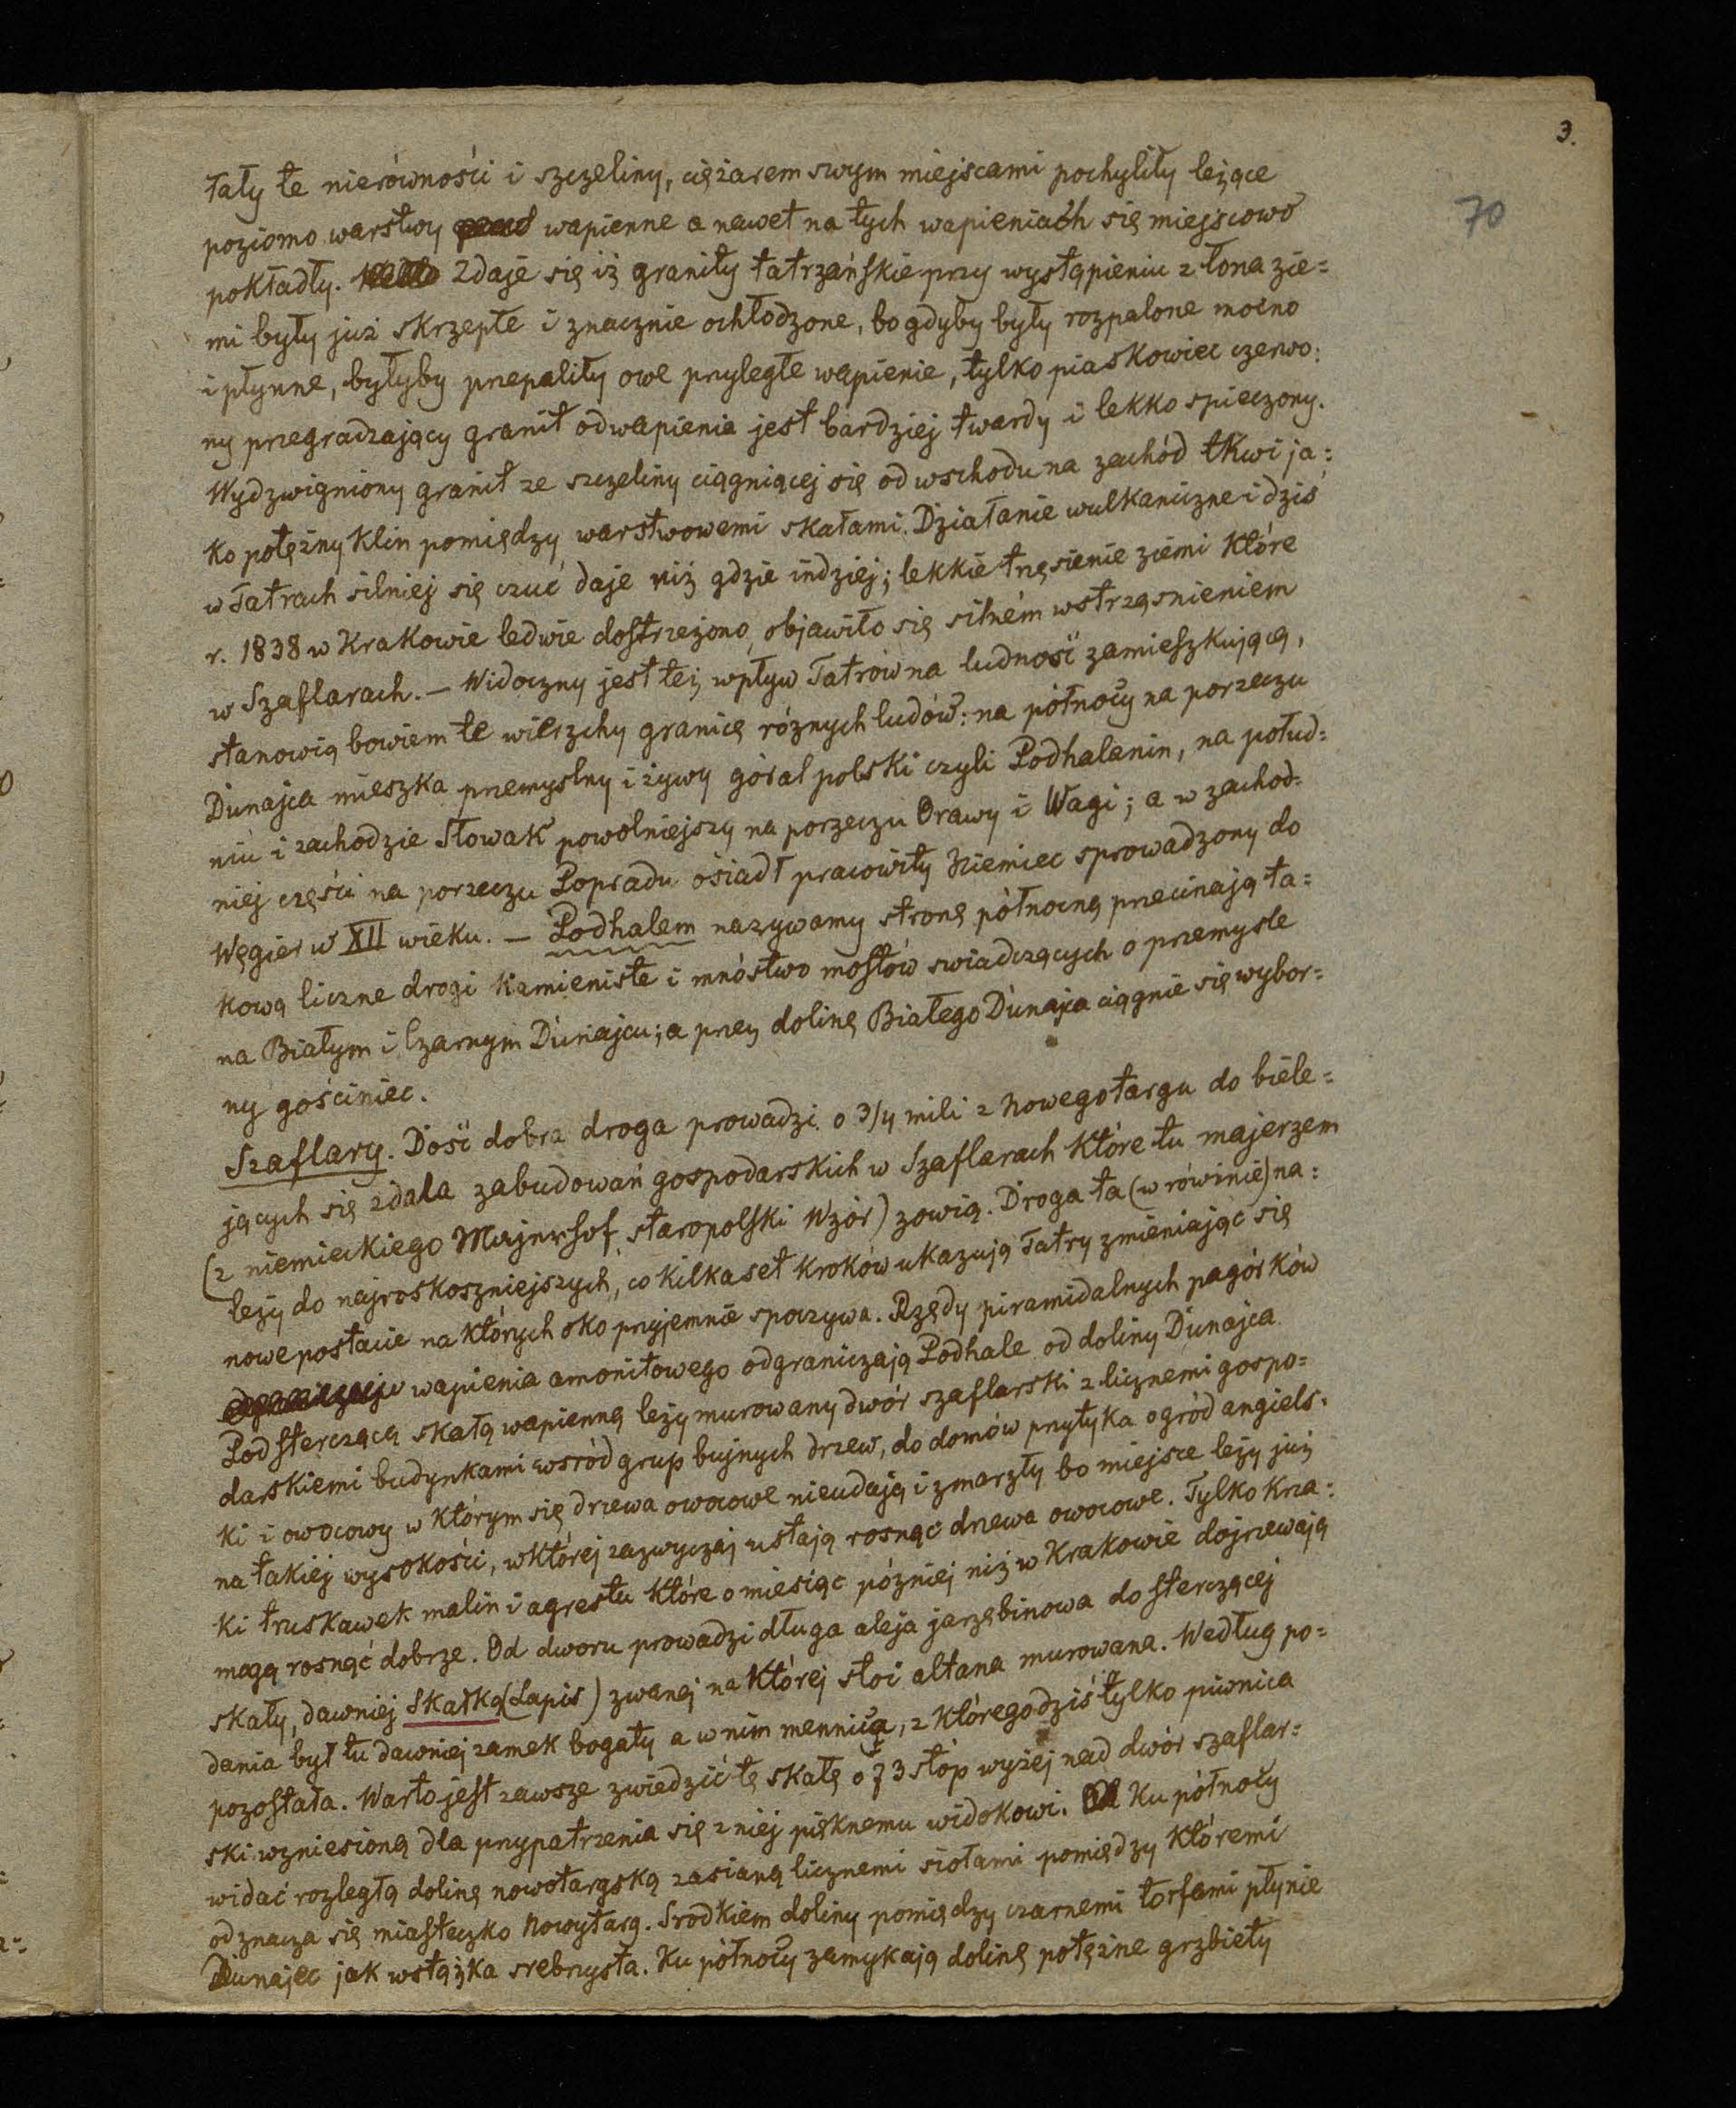 3.
70
tały te nierówności i szczeliny, ciężarem swym miejscami pochyliły leżące
poziomo warstwy wapienne a nawet na tych wapieniach się miejscowo
pokładły. Zdaje się iż granity tatrzańskie przy wystąpieniu z łona zie=
mi były już skrzepłe i znacznie ochłodzone, bo gdyby były rozpalone mocno
i płynne, byłyby przepaliły owe przyległe wapienie, tylko piaskowiec czerwo:
ny przegradzający granit od wapienia jest bardziej twardy i lekko spieczony.
Wydzwigniony granit ze szczeliny ciągniącej się od wschodu na zachód tkwi ja:
ko potężny klin pomiędzy warstwowemi skałami. Działanie wulkaniczne i dziś
w Tatrach silniej się czuć daje niż gdzie indziej; lekkie trzęsienie ziemi które
r. 1838 w Krakowie ledwie dostrzeżono, objawiło się silném wstrząsnieniem
w Szaflarach. — Widoczny jest też wpływ Tatrów na ludność zamieszkującą,
stanowią bowiem te wierzchy granicę różnych ludów: na północy na porzeczu
Dunajca mieszka przemyslny i żywy góral polski czyli Podhalanin, na połud=
niu i zachodzie Słowak powolniejszy na porzeczu Orawy i Wagi; a w zachod=
niej części na porzeczu Popradu osiadł pracowity Niemiec sprowadzony do
Węgier w XII wieku. — Podhalem nazywamy stronę północną przecinają ta=
kową liczne drogi kamieniste i mnóstwo mostów swiadczących o przemysle
na Białym i Czarnym Dunajcu; a przez dolinę Białego Dunajca ciągnie się wybor=
ny gościniec.
Szaflary. Dość dobra droga prowadzi o 3/4 mili z Nowegotargu do biele=
jących się zdala zabudowań gospodarskich w Szaflarach które tu majerzem
(z niemieckiego Majerhof, staropolski Wzór) zowią. Droga ta (w rówinie) na:
leży do najroskoszniejszych, co kilkaset kroków ukazują Tatry zmieniając się
nowe postacie na których oko przyjemnie spoczywa. Rzędy piramidalnych pagórków
wapienia amonitowego odgraniczają Podhale od doliny Dunajca
Pod sterczącą skałą wapienną leży murowany dwór szaflarski z licznemi gospo=
darskiemi budynkami wsród grup bujnych drzew, do domów przytyka ogród angiels=
ki i owocowy w którym się drzewa owocowe nieudają i zmarzły bo miejsce leży już
na takiej wysokości, w której zazwyczaj ustają rosnąć drzewa owocowe. Tylko krza:
ki truskawek malin i agrestu które o miesiąc później niż w Krakowie dojrzewają
mogą rosnąć dobrze. Od dworu prowadzi długa aleja jarzębinowa do sterczącej
skały, dawniej Skałką (Lapis) zwanej na której stoi altana murowana. Według po=
dania był tu dawniej zamek bogaty a w nim mennicą, z którego dziś tylko piwnica
pozostała. Warto jest zawsze zwiedzić tę skałę o 73 stóp wyżej nad dwór szaflar=
ski wzniesioną dla przypatrzenia się z niej pięknemu widokowi. Ku północy
widać rozległą dolinę nowotargską zasianą licznemi siołami pomiędzy któremi
odznacza się miasteczko Nowytarg. Srodkiem doliny pomiędzy czarnemi torfami płynie
Dunajec jak wstążka srebrzysta. Ku północy zamykają dolinę potężne grzbiety